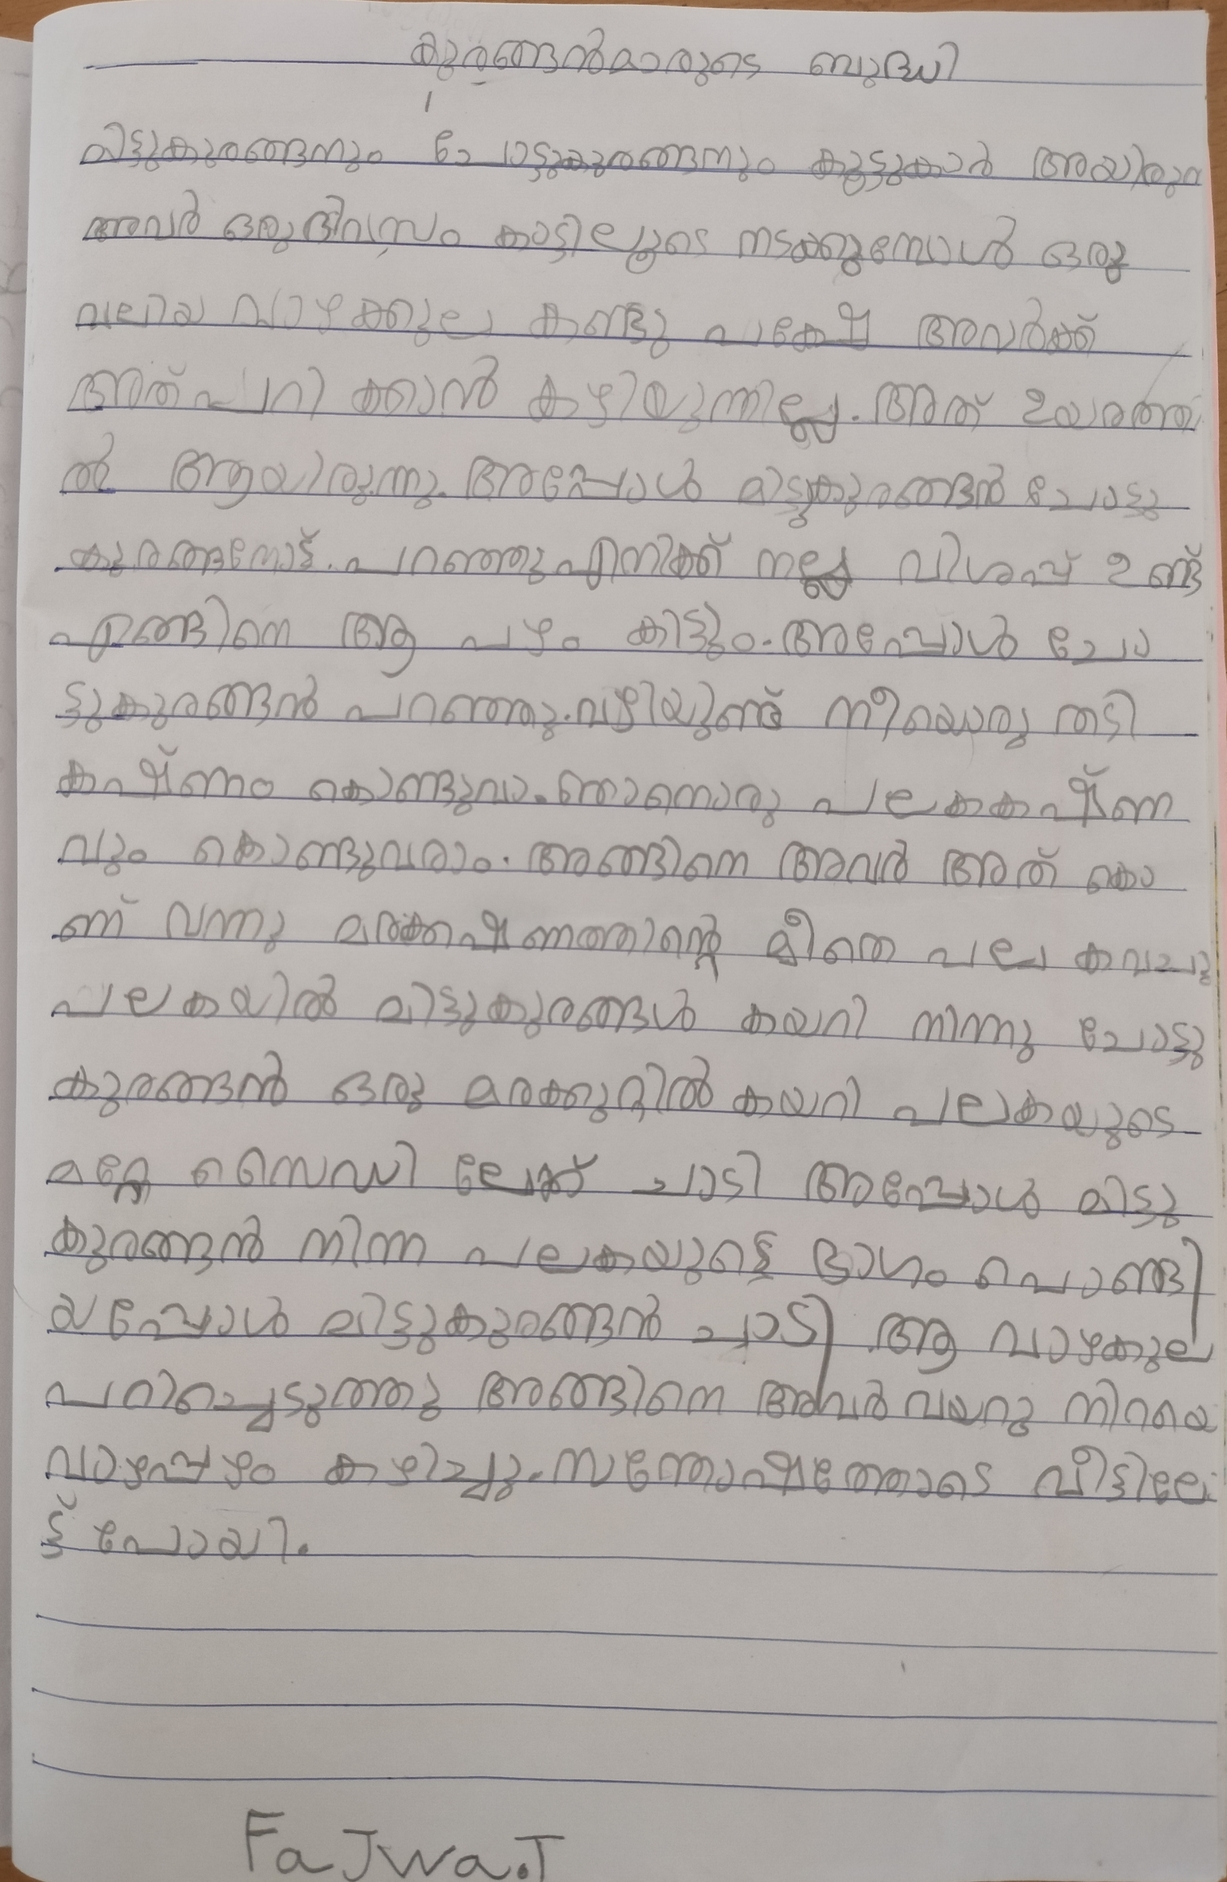 കുരങ്ങൻമാരുടെ ബുദ്ധി
മിട്ടുകുരങ്ങനും ചോട്ടുകുരങ്ങനും കൂട്ടുകാർ അയിരുന
അവർ ഒരുദിവസം കാട്ടിലൂടെ നടക്കുമ്പോൾ ഒരു
വലിയ വാഴക്കുല കണ്ടു പക്ഷേ അവർക്ക്
അത് പറിക്കാൻ കഴിയുന്നില്ല. അത് ഉയരത്തി
ൽ ആയിരുന്നു. അപ്പോൾ മിട്ടുകുരങ്ങൻ ചോട്ടു
കുരങ്ങനോട് പറഞ്ഞു എനിക്ക് നല്ല വിശപ്പ് ഉണ്ട്
എങ്ങിനെ ആ പഴം കിട്ടും. അപ്പോൾ ചോ
ട്ടുകുരങ്ങൻ പറഞ്ഞു. വഴിയുണ്ട് നീയൊരു തടി
കഷ്ണം കൊണ്ടുവാ. ഞാനൊരു പലകകഷ്ണ
വും കൊണ്ടുവരാം. അങ്ങിനെ അവർ അത് കൊ
ണ്ട് വന്നു മരകഷ്ണത്തിന്റെ മീതെ പലകവെച്ചു
പലകയിൽ മിട്ടുകുരങ്ങൾ കയറി നിന്നു ചോട്ടു
കുരങ്ങൻ ഒരു മരക്കുറ്റിൽ കയറി പലകയുടെ
മറ്റേ സൈഡിലേക്ക് ചാടി അപ്പോൾ മിട്ടു
കുരങ്ങൻ നിന്ന പലകയുടെ ഭാഗം പൊങ്ങി
യപ്പോൾ മിട്ടുകുരങ്ങൻ ചാടി ആ വാഴകുല
പറിച്ചെടുത്തു അങ്ങിനെ അവർ വയറു നിറയെ
വാഴപ്പഴം കഴിച്ചു. സന്തോഷത്തോടെ വീട്ടിലേ
ട്ട് പോയി.
Fa Jwa.T